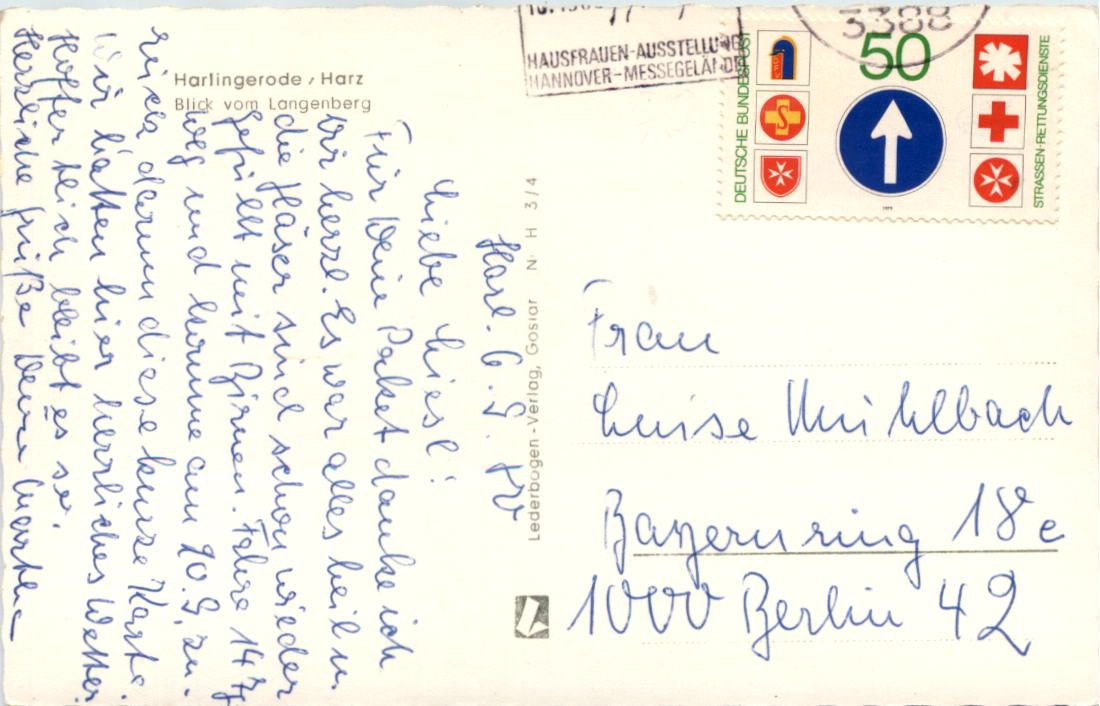 Harlingerode / Harz
Blick vom Langenberg
Harl. 6.9.
Liebe Liesl!
Für Dein Paket danke ich
Dir herzl. Es war alles heil u.
die Gläser sind schon wieder
gefüllt mit Birnen. Fahre 14 Tg
weg und komme am 20.9. zu-
rück darum diese kurze Karte.
Wir hatten hier herrliches Wetter.
Hoffentlich bleibt es so.
Herzliche Grüße Deine Martha
Lederbogen-Verlag, Goslar N· H 3/4
HAUSFRAUEN-AUSSTELLUNG
HANNOVER-MESSEGELÄNDE
3388
DEUTSCHE BUNDESPOST
50
STRASSEN-RETTUNGSDIENSTE
Frau
Luise Mühlbach
Bayernring 18c
1000 Berlin 42